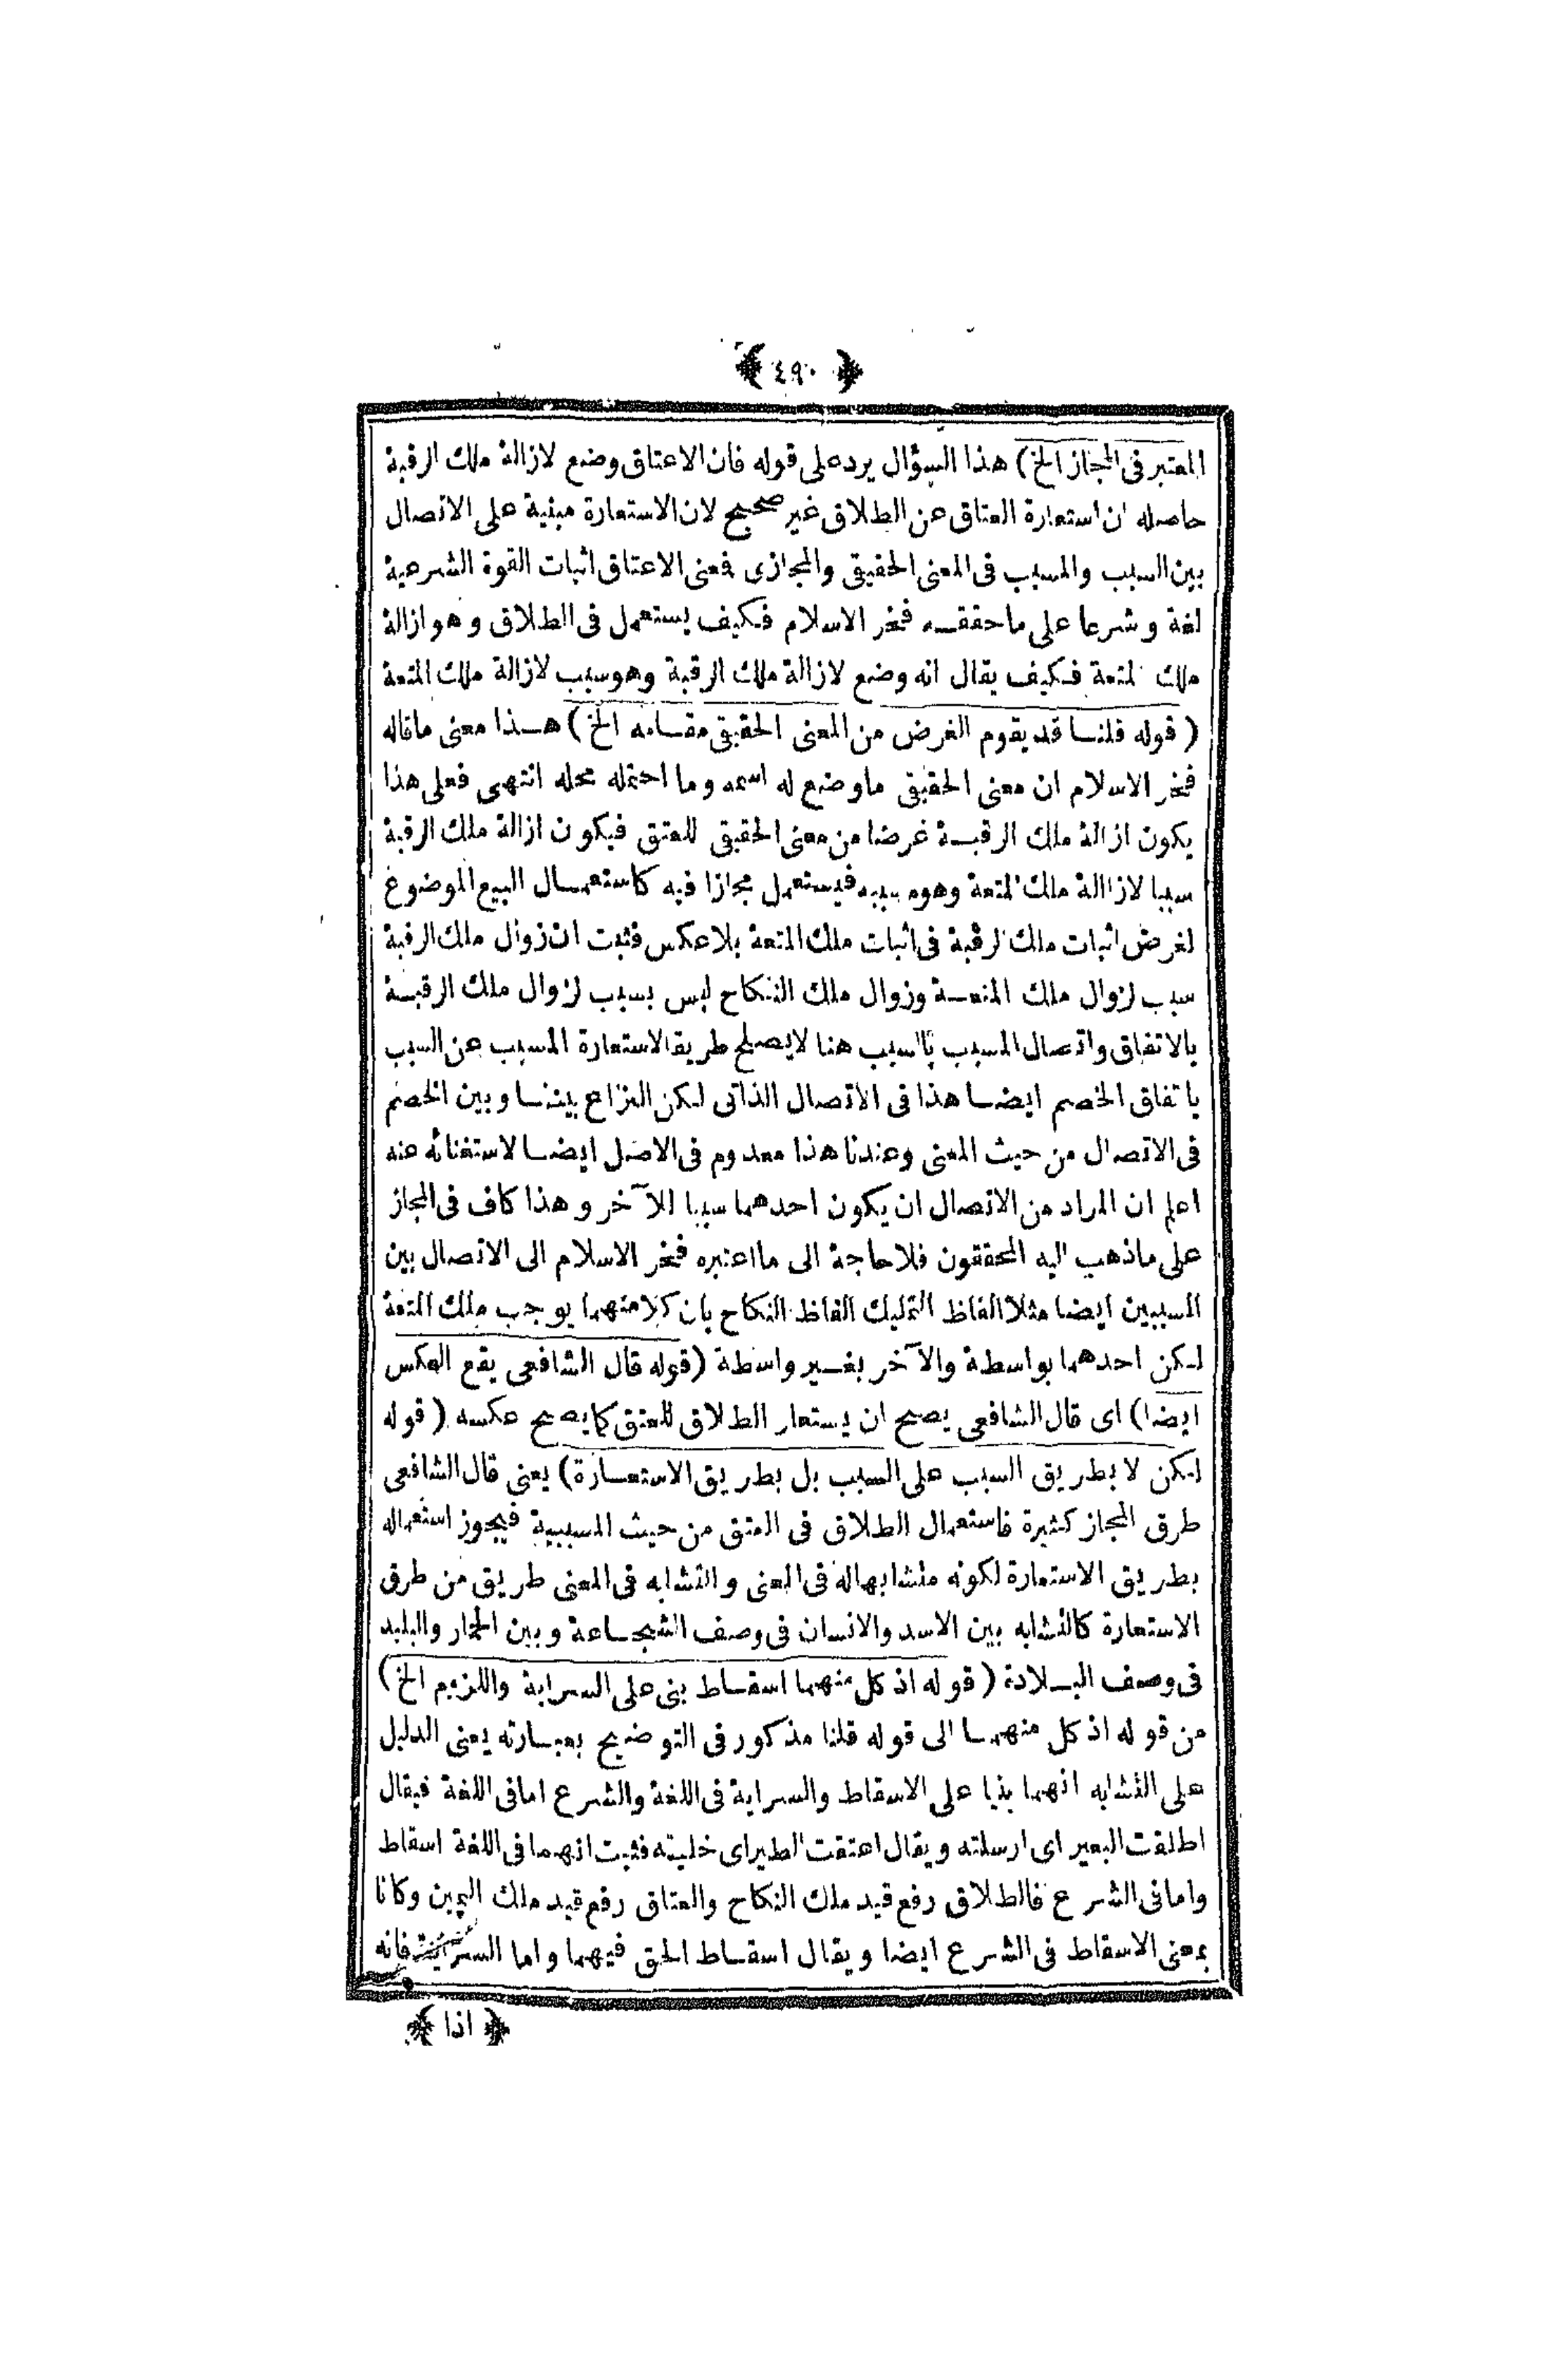 ﴿ ٤٩٠ ﴾
المعتبر فى المجاز الخ) هذا السؤال يرد على قوله فان الاعتاق وضع لازالة ملك الرقبة
حاصله ان استعارة العتاق عن الطلاق غير صحيح لان الاستعارة مبنية على الاتصال
بين السبب والمسبب فى المعنى الحقيقى والمجازى فمعنى الاعتاق اثبات القوة الشرعية
لغة و شرعا على ما حققه فخر الاسلام فكيف يستعمل فى الطلاق و هو ازالة
ملك المتعة فكيف يقال انه وضع لازالة ملك الرقبة وهو سبب لازالة ملك المتعة
( قوله قلنا قد يقوم الغرض من المعنى الحقيقى مقامه الخ ) هذا معنى ماقاله
فخر الاسلام ان معنى الحقيقى ماوضع له اسمه و ما احتمله محله انتهى فعلى هذا
يكون ازالة ملك الرقبة غرضا من معنى الحقيقى للعتق فيكون ازالة ملك الرقبة
سببا لازاالة ملك المتعة وهو مسببه فيستعمل مجازا فيه كاستعمال البيع الموضوع
لغرض اثبات ملك الرقبة فى اثبات ملك المتعة بلا عكس فثبت ان زوال ملك الرقبة
سبب لزوال ملك المتعة وزوال ملك النكاح ليس بسبب لزوال ملك الرقبة
بالاتفاق واتصال المسبب بالسبب هنا لايصلح طريقا لاستعارة المسبب عن السبب
باتفاق الخصم ايضا هذا فى الاتصال الذاتى لكن النزاع بيننا و بين الخصم
فى الاتصال من حيث المعنى وعندنا هذا معدوم فى الاصل ايضا لاستغنائه عنه
اعلم ان المراد من الاتصال ان يكون احدهما سببا للآخر و هذا كاف فى المجاز
على ماذهب اليه المحققون فلا حاجة الى ما اعتبره فخر الاسلام الى الاتصال بين
السببين ايضا مثلا الفاظ التمليك الفاظ النكاح بان كلا منهما يوجب ملك المتعة
لكن احدهما بواسطة والآخر بغير واسطة (قوله قال الشافعى يقع العكس
ايضا) اى قال الشافعى يصح ان يستعار الطلاق للعتق كما يصح عكسه ( قوله
لكن لا بطريق السبب على السبب بل بطريق الاستعارة) يعنى قال الشافعى
طرق المجاز كثيرة فاستعمال الطلاق فى العتق من حيث المسببية فيجوز استعماله
بطريق الاستعارة لكونه متشابهاله فى المعنى و التشابه فى المعنى طريق من طرق
الاستعارة كالتشابه بين الاسد والانسان فى وصف الشجاعة و بين الحمار والبليد
فى وصف البلادة ( قوله اذ كل منهما اسقاط بنى على السراية واللزوم الخ )
من قوله اذ كل منهما الى قوله قلنا مذكور فى التوضيح بعبارته يعنى الدليل
على التشابه انهما بنيا على الاسقاط والسراية فى اللغة والشرع اما فى اللغة فيقال
اطلقت البعير اى ارسلته و يقال اعتقت الطير اى خليته فثبت انهما فى اللغة اسقاط
واما فى الشرع فالطلاق رفع قيد ملك النكاح والعتاق رفع قيد ملك اليمين وكانا
بمعنى الاسقاط فى الشرع ايضا و يقال اسقاط الحق فيهما و اما السراية فانه
﴿ اذا ﴾